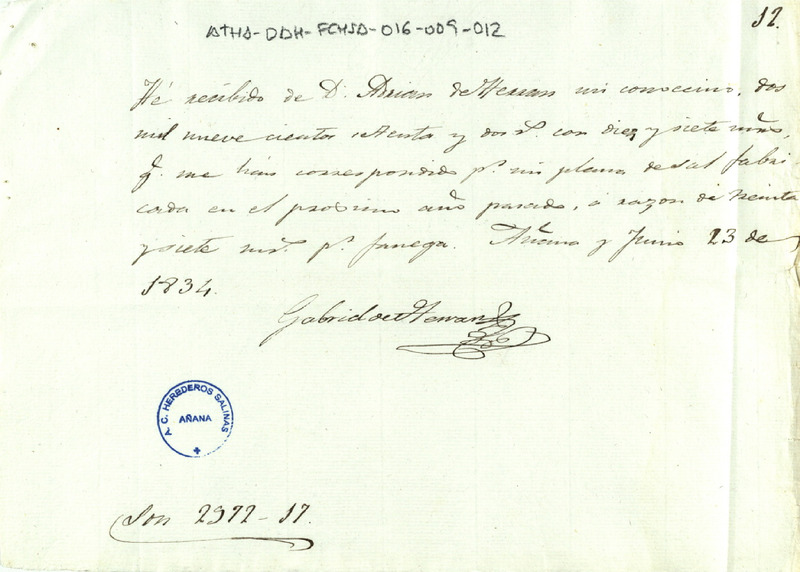 ATHA-DAH-FCHSA-016-009-012
12.
Hé recibido de D. Adrian de Herran mi convecino, dos
mil nueve cientos setenta y dos r.s con diez y siete mrs,
q.e me han correspondido p.r mi plana de sal fabri
cada en el proximo año pasado, á razon de treinta
y siete mrs. p.r fanega. Añana y Junio 23 de
1834.
Gabriel de Herran
A. C. HEREDEROS SALINAS
AÑANA
Son 2972-17.